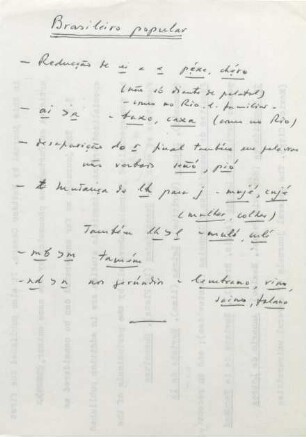 Brasileiro popular
- Redução de ei a e pẹxe, chẹro
(não só diante de palatal)
- como no Rio, l. familiar -
- ai > a - baxo, caxa (como no Rio)
- desaparição do r final também em palavras
não verbais señó, pió
- mudança de lh para j - mujé, cujé
(mulher, colher)
Também lh > l - mulé, culé
- mb > m tamém
- nd > n nos gerúndios - lembrano, vino,
saino, falano